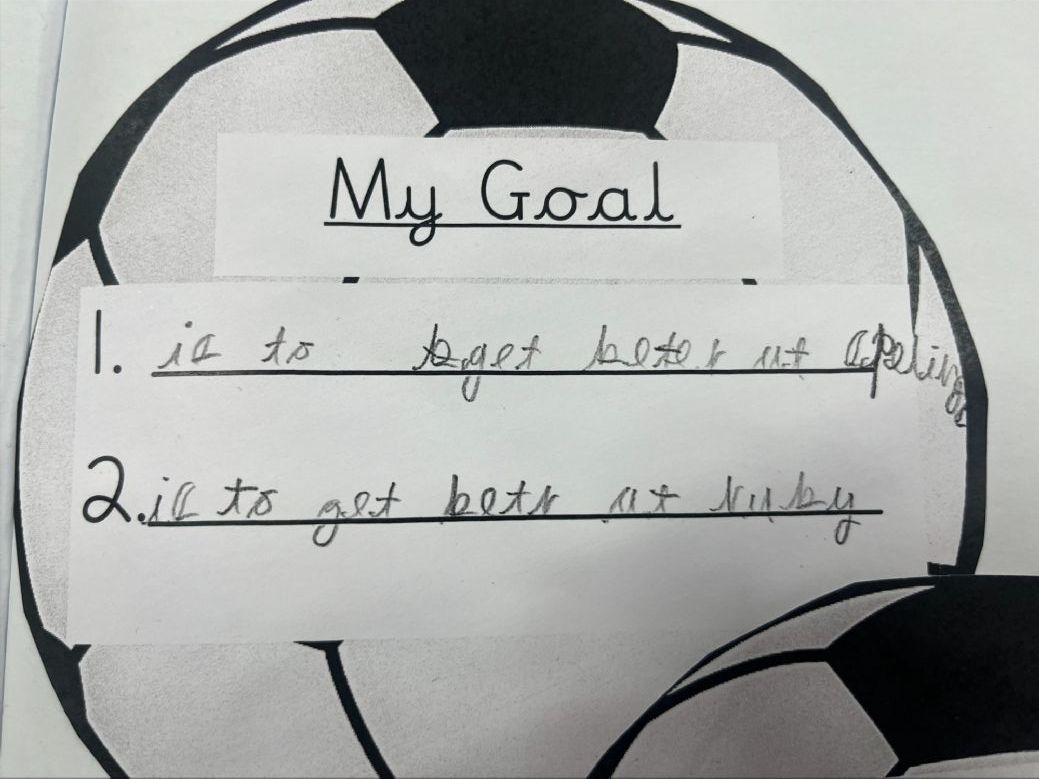 My Goal
1. is to get beter at speling
2. is to get betr at ruby